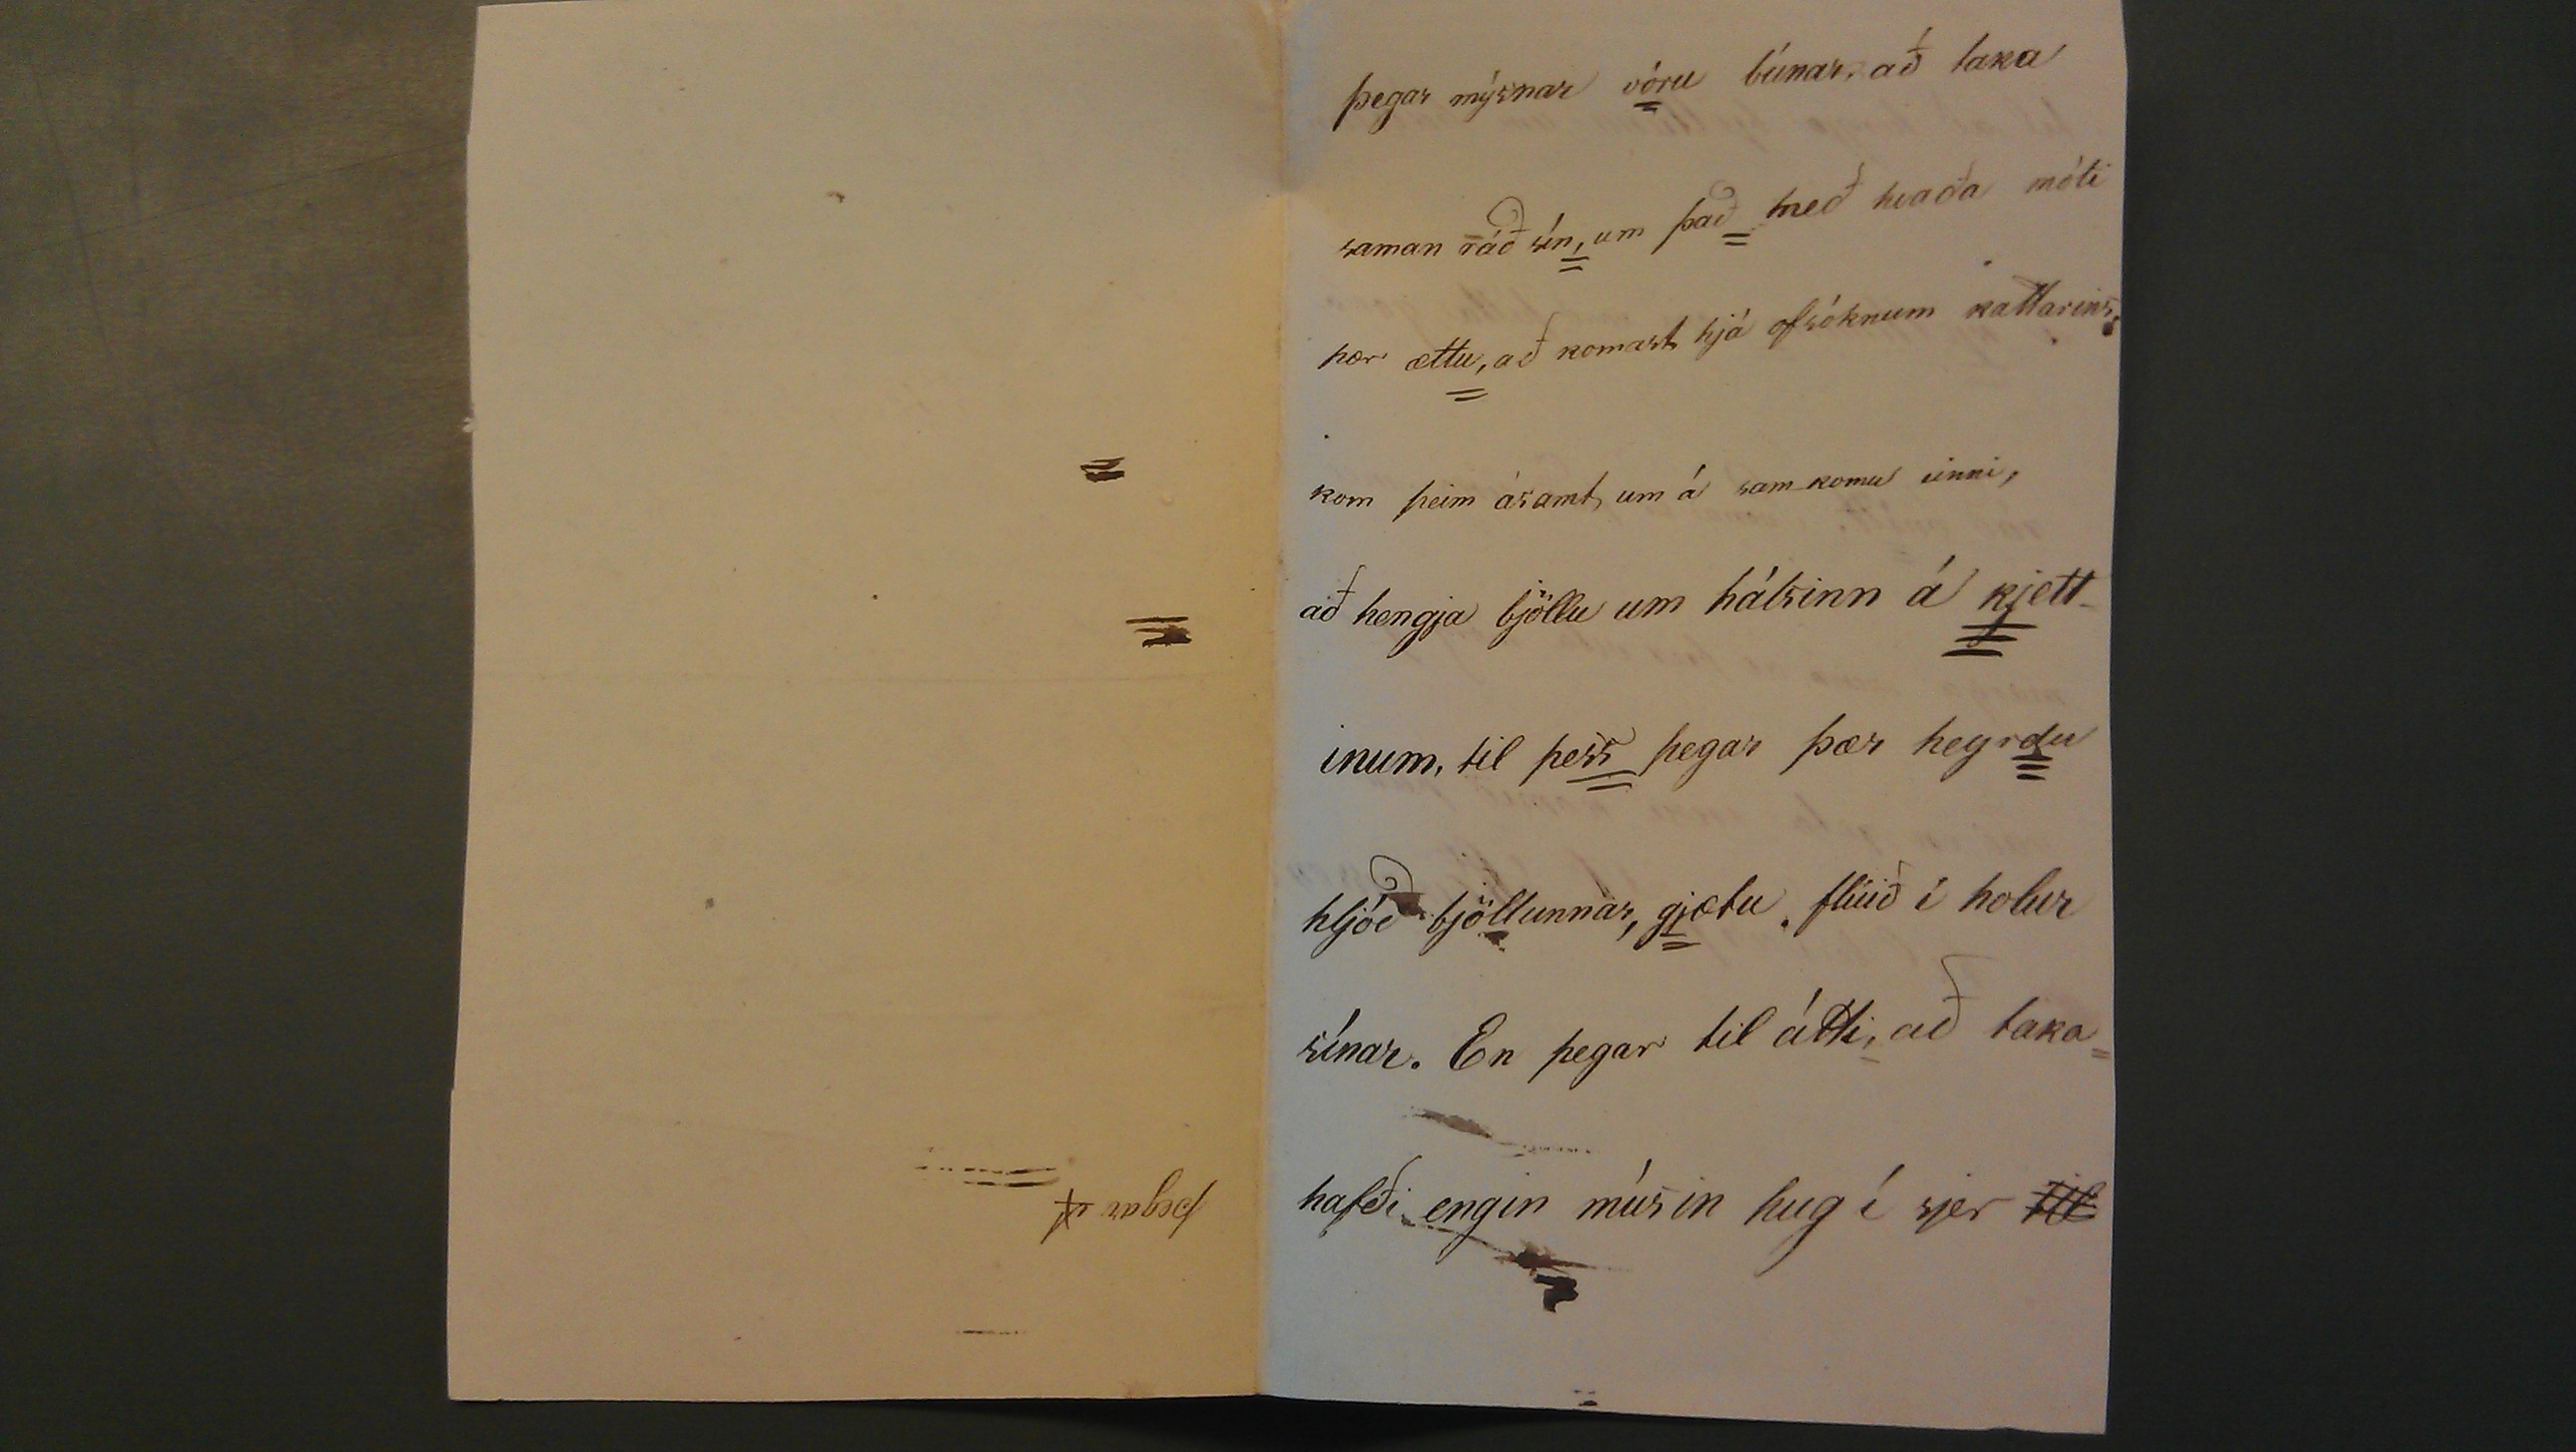 þegar mýsnar vóru búnar, að taka
saman ráð sín, um það með hvaða móti
þær ættu, að komast hjá ofsóknum kattarins,
kom þeim ásamt, um á samkomu einni,
að hengja bjöllu um hálsinn á kjett-
inum, til þess þegar þær heyrdu
hljóð bjöllunnar, gjætu flúið í holur
sínar. En þegar til átti, að taka
hafði engin músin hug í sjer til
þegar